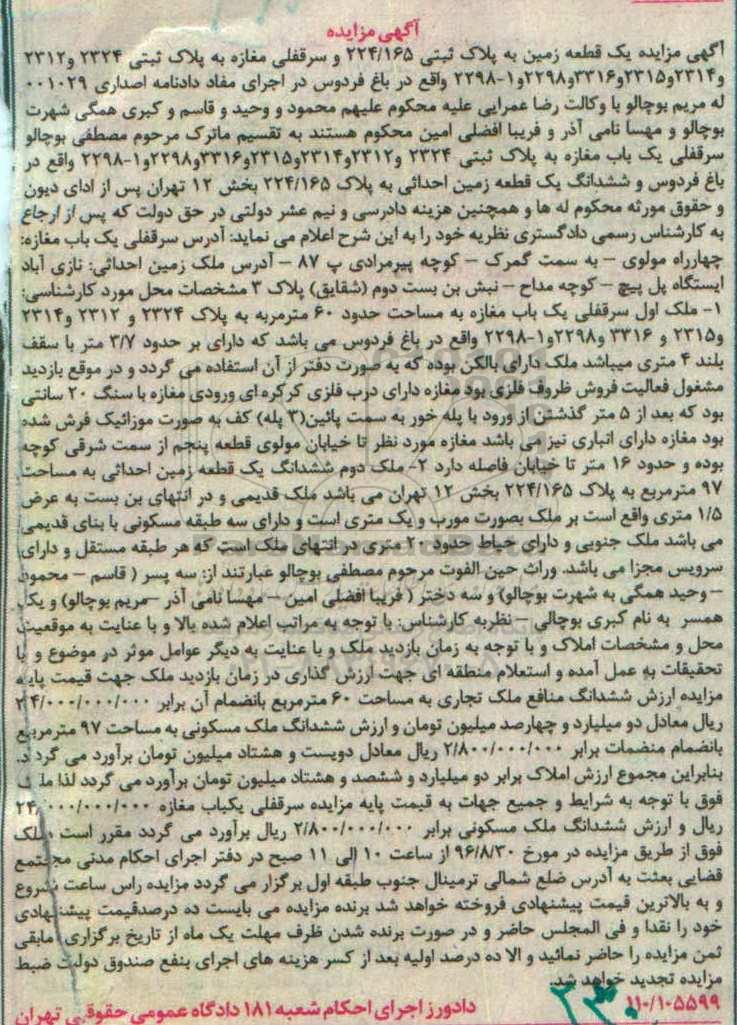 آگهی مزایده
آگهی مزایده یک قطعه زمین به پلاک ثبتی ۲۲۴/۱۶۵ و سرقفلی مغازه به پلاک ثبتی ۲۳۲۴ و۲۳۱۲
و۲۳۱۴و۲۳۱۵و۳۳۱۶و۲۲۹۸و۱-۲۲۹۸ واقع در باغ فردوس در اجرای مفاد دادنامه اصداری ۰۰۱۰۲۹
له مریم بوچالو با وکالت رضا عمرایی علیه محکوم علیهم محمود و وحید و قاسم و کبری همگی شهرت
بوچالو و مهسا نامی آذر و فریبا افضلی امین محکوم هستند به تقسیم ماترک مرحوم مصطفی بوچالو
سرقفلی یک باب مغازه به پلاک ثبتی ۲۳۲۴ و۲۳۱۲و۲۳۱۴و۲۳۱۵و۳۳۱۶و۲۲۹۸و۱-۲۲۹۸ واقع در
باغ فردوس و ششدانگ یک قطعه زمین احداثی به پلاک ۲۲۴/۱۶۵ بخش ۱۲ تهران پس از ادای دیون
و حقوق مورثه محکوم له ها و همچنین هزینه دادرسی و نیم عشر دولتی در حق دولت که پس از ارجاع
به کارشناس رسمی دادگستری نظریه خود را به این شرح اعلام می نماید: آدرس سرقفلی یک باب مغازه:
چهارراه مولوی – به سمت گمرک – کوچه پیرمرادی پ ۸۷ – آدرس ملک زمین احداثی: نازی آباد
ایستگاه پل پیچ – کوچه مداح – نبش بن بست دوم (شقایق) پلاک ۳ مشخصات محل مورد کارشناسی:
۱- ملک اول سرقفلی یک باب مغازه به مساحت حدود ۶۰ مترمربه به پلاک ۲۳۲۴ و ۲۳۱۲ و۲۳۱۴
و۲۳۱۵ و ۳۳۱۶ و۲۲۹۸و۱-۲۲۹۸ واقع در باغ فردوس می باشد که دارای بر حدود ۳/۷ متر با سقف
بلند ۴ متری میباشد ملک دارای بالکن بوده که به صورت دفتر از آن استفاده می گردد و در موقع بازدید
مشغول فعالیت فروش ظروف فلزی بود مغازه دارای درب فلزی کرکره ای ورودی مغازه با سنگ ۲۰ سانتی
بود که بعد از ۵ متر گذشتن از ورود با پله خور به سمت پائین(۳ پله) کف به صورت موزائیک فرش شده
بود مغازه دارای انباری نیز می باشد مغازه مورد نظر تا خیابان مولوی قطعه پنجم از سمت شرقی کوچه
بوده و حدود ۱۶ متر تا خیابان فاصله دارد ۲- ملک دوم ششدانگ یک قطعه زمین احداثی به مساحت
۹۷ مترمربع به پلاک ۲۲۴/۱۶۵ بخش ۱۲ تهران می باشد ملک قدیمی و در انتهای بن بست به عرض
۱/۵ متری واقع است بر ملک بصورت مورب و یک متری است و دارای سه طبقه مسکونی با بنای قدیمی
می باشد ملک جنوبی و دارای حیاط حدود ۲۰ متری در انتهای ملک است که هر طبقه مستقل و دارای
سرویس مجزا می باشد. وراث حین الفوت مرحوم مصطفی بوچالو عبارتند از: سه پسر ( قاسم – محمود
– وحید همگی به شهرت بوچالو) و سه دختر ( فریبا افضلی امین – مهسا نامی آذر –مریم بوچالو) و یک
همسر به نام کبری بوچالی – نظریه کارشناس: با توجه به مراتب اعلام شده بالا و با عنایت به موقعیت
محل و مشخصات املاک و با توجه به زمان بازدید ملک و با عنایت به دیگر عوامل موثر در موضوع و با
تحقیقات به عمل آمده و استعلام منطقه ای جهت ارزش گذاری در زمان بازدید ملک جهت قیمت پایه
مزایده ارزش ششدانگ منافع ملک تجاری به مساحت ۶۰ مترمربع بانضمام آن برابر ۲۴/۰۰۰/۰۰۰/۰۰۰
ریال معادل دو میلیارد و چهارصد میلیون تومان و ارزش ششدانگ ملک مسکونی به مساحت ۹۷ مترمربع
بانضمام منضمات برابر ۲/۸۰۰/۰۰۰/۰۰۰ ریال معادل دویست و هشتاد میلیون تومان برآورد می گردد.
بنابراین مجموع ارزش املاک برابر دو میلیارد و ششصد و هشتاد میلیون تومان برآورد می گردد لذا ملک
فوق با توجه به شرایط و جمیع جهات به قیمت پایه مزایده سرقفلی یکباب مغازه ۲۴/۰۰۰/۰۰۰/۰۰۰
ریال و ارزش ششدانگ ملک مسکونی برابر ۲/۸۰۰/۰۰۰/۰۰۰ ریال برآورد می گردد مقرر است ملک
فوق از طریق مزایده در مورخ ۹۶/۸/۳۰ از ساعت ۱۰ الی ۱۱ صبح در دفتر اجرای احکام مدنی مجتمع
قضایی بعثت به آدرس ضلع شمالی ترمینال جنوب طبقه اول برگزار می گردد مزایده راس ساعت شروع
و به بالاترین قیمت پیشنهادی فروخته خواهد شد برنده مزایده می بایست ده درصدقیمت پیشنهادی
خود را نقدا و فی المجلس حاضر و در صورت برنده شدن ظرف مهلت یک ماه از تاریخ برگزاری مابقی
ثمن مزایده را حاضر نمائید و الا ده درصد اولیه بعد از کسر هزینه های اجرای بنفع صندوق دولت ضبط
مزایده تجدید خواهد شد.
۱۱۰/۱۰۵۵۹۹ دادورز اجرای احکام شعبه ۱۸۱ دادگاه عمومی حقوقی تهران